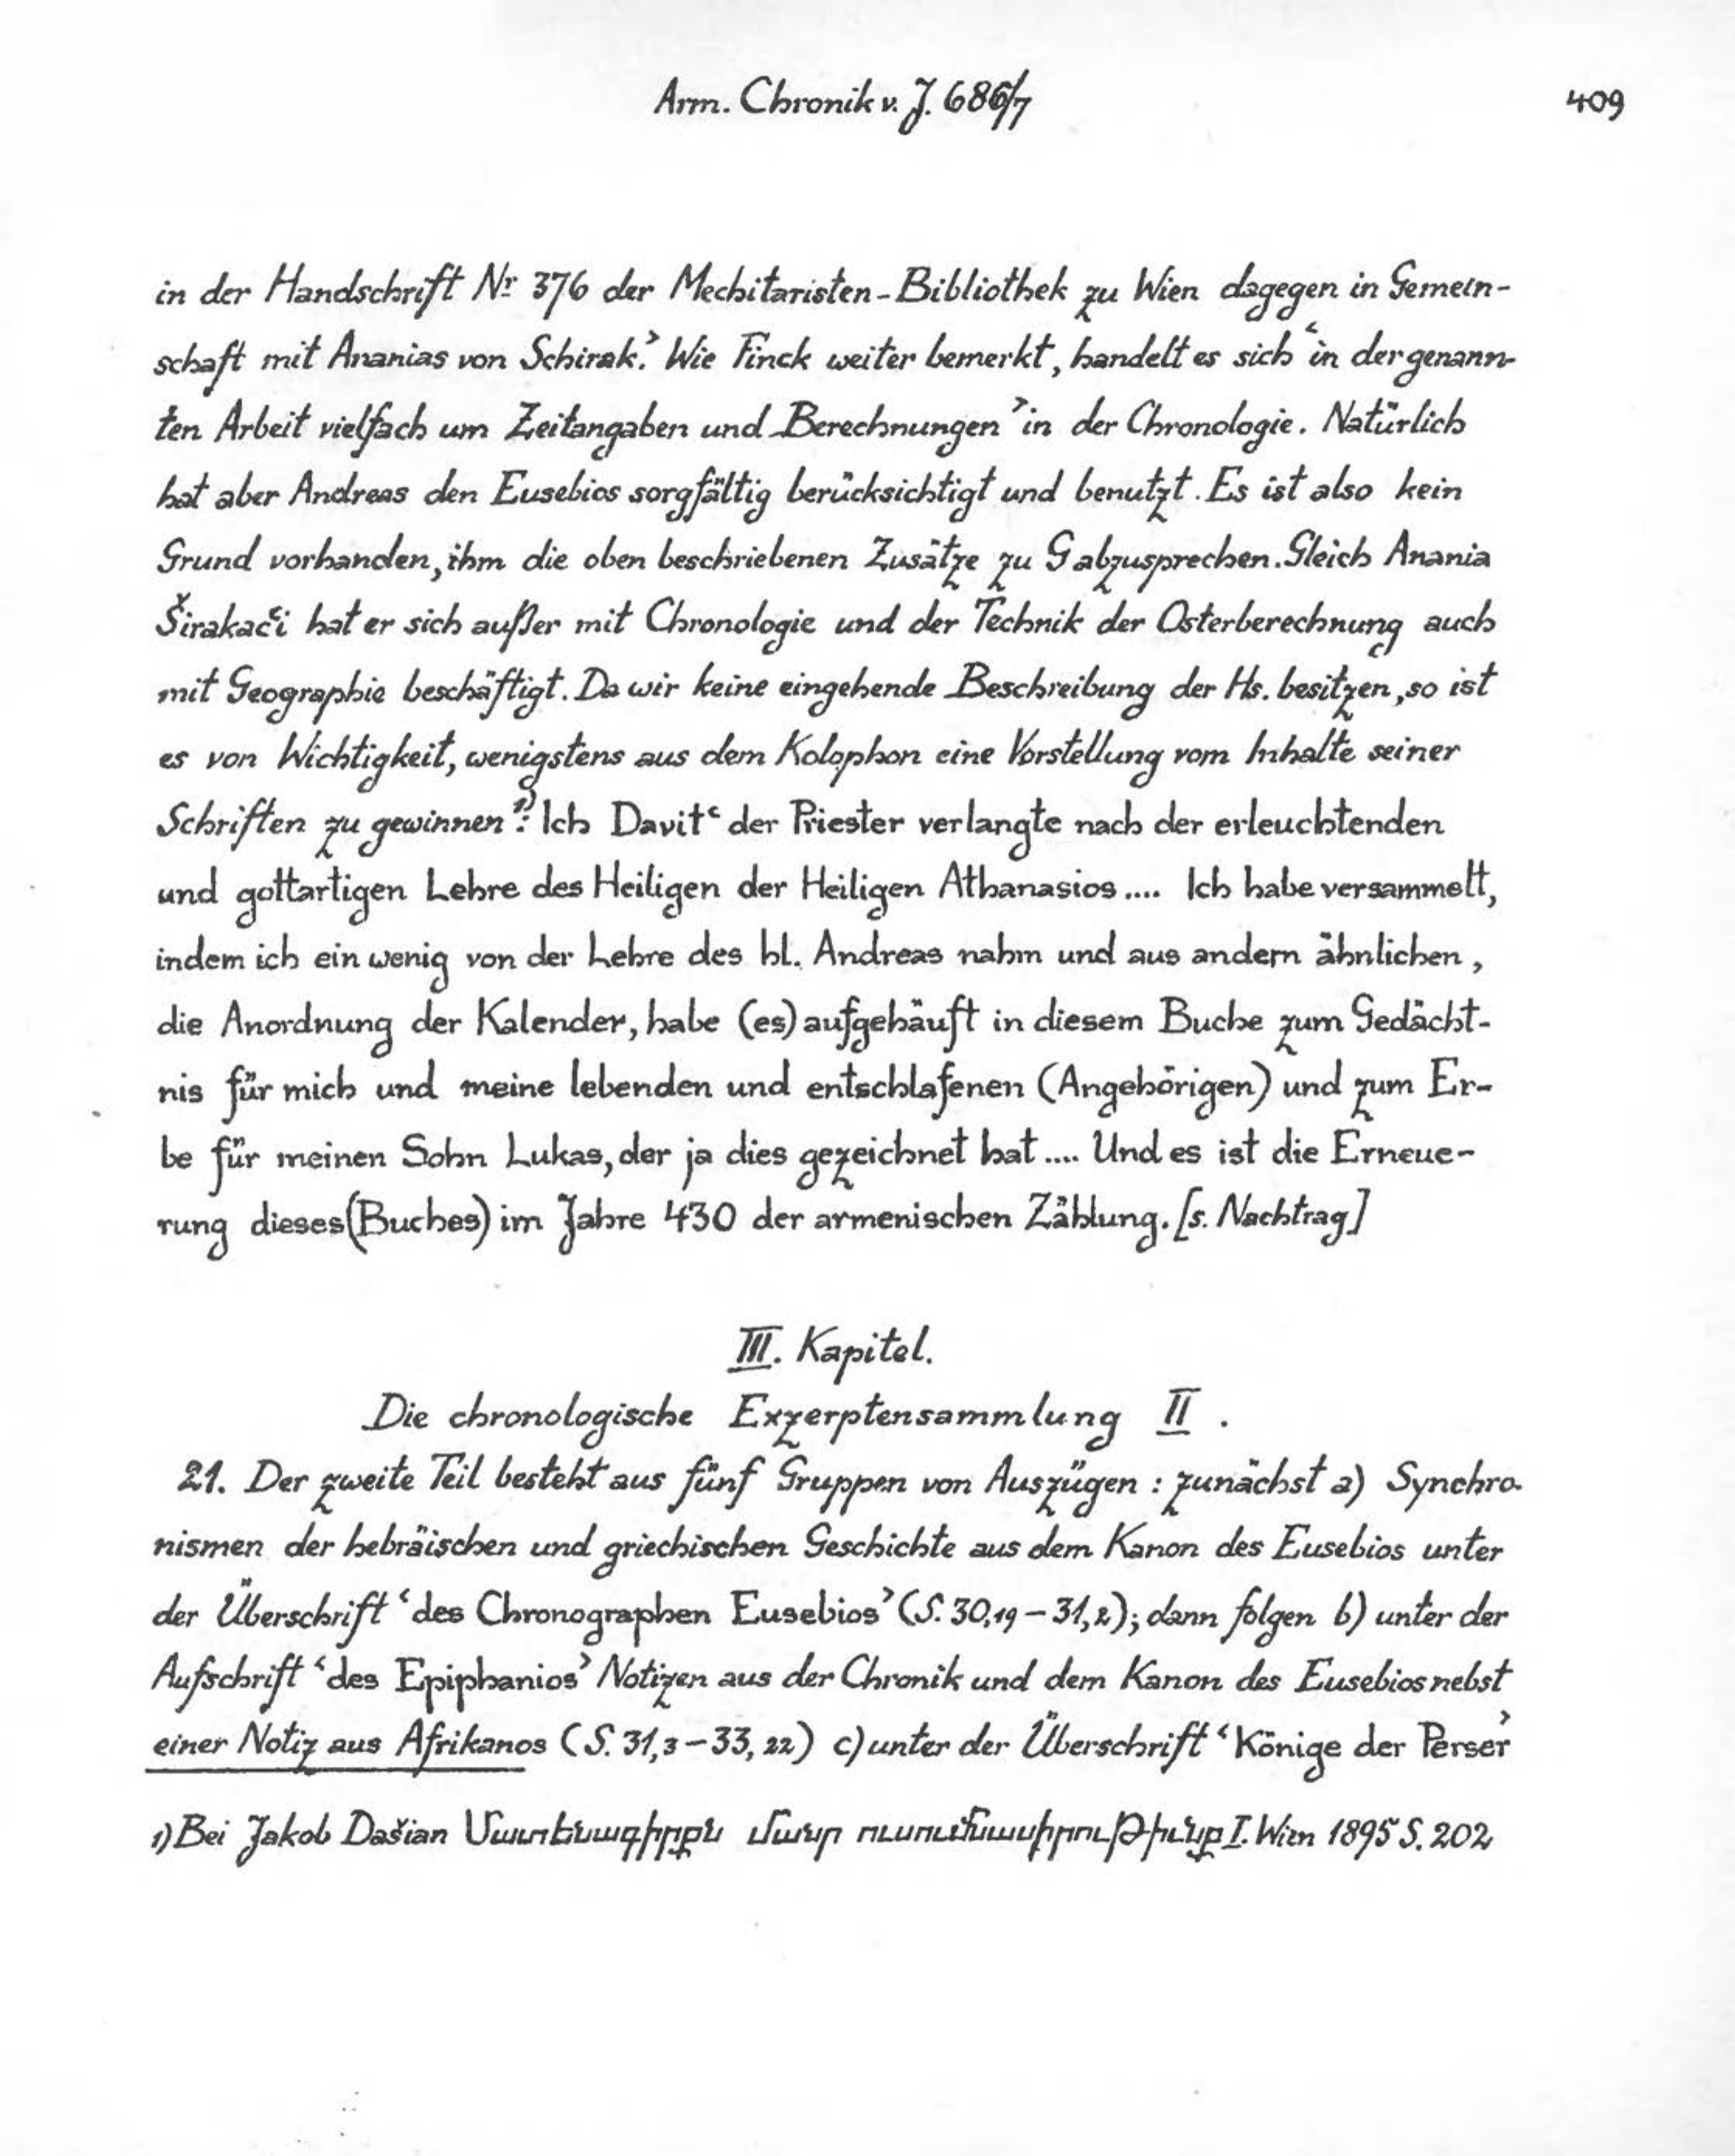 Arm. Chronik v. J. 686/7 409
in der Handschrift Nr. 376 der Mechitaristen-Bibliothek zu Wien dagegen in Gemein-
schaft mit Ananias von Schirak.’ Wie Finck weiter bemerkt, handelt es sich ‘in der genann-
ten Arbeit vielfach um Zeitangaben und Berechnungen’ in der Chronologie. Natürlich
hat aber Andreas den Eusebios sorgfältig berücksichtigt und benutzt. Es ist also kein
Grund vorhanden, ihm die oben beschriebenen Zusätze zu G abzusprechen. Gleich Anania
Širakacʿi hat er sich außer mit Chronologie und der Technik der Osterberechnung auch
mit Geographie beschäftigt. Da wir keine eingehende Beschreibung der Hs. besitzen, so ist
es von Wichtigkeit, wenigstens aus dem Kolophon eine Vorstellung vom Inhalte seiner
Schriften zu gewinnen 1): Ich Davitʿ der Priester verlangte nach der erleuchtenden
und gottartigen Lehre des Heiligen der Heiligen Athanasios .... Ich habe versammelt,
indem ich ein wenig von der Lehre des hl. Andreas nahm und aus andern ähnlichen,
die Anordnung der Kalender, habe (es) aufgehäuft in diesem Buche zum Gedächt-
nis für mich und meine lebenden und entschlafenen (Angehörigen) und zum Er-
be für meinen Sohn Lukas, der ja dies gezeichnet hat .... Und es ist die Erneue-
rung dieses (Buches) im Jahre 430 der armenischen Zählung. [s. Nachtrag]
III. Kapitel.
Die chronologische Exzerptensammlung II.
21. Der zweite Teil besteht aus fünf Gruppen von Auszügen: zunächst a) Synchro-
nismen der hebräischen und griechischen Geschichte aus dem Kanon des Eusebios unter
der Überschrift ‘des Chronographen Eusebios’ (S. 30,19 – 31,2); dann folgen b) unter der
Aufschrift ‘des Epiphanios’ Notizen aus der Chronik und dem Kanon des Eusebios nebst
einer Notiz aus Afrikanos (S. 31,3 – 33,22) c) unter der Überschrift ‘Könige der Perser’
1) Bei Jakob Dašian Մատենագիրքն մանր ուսումնասիրութիւնք I. Wien 1895 S. 202